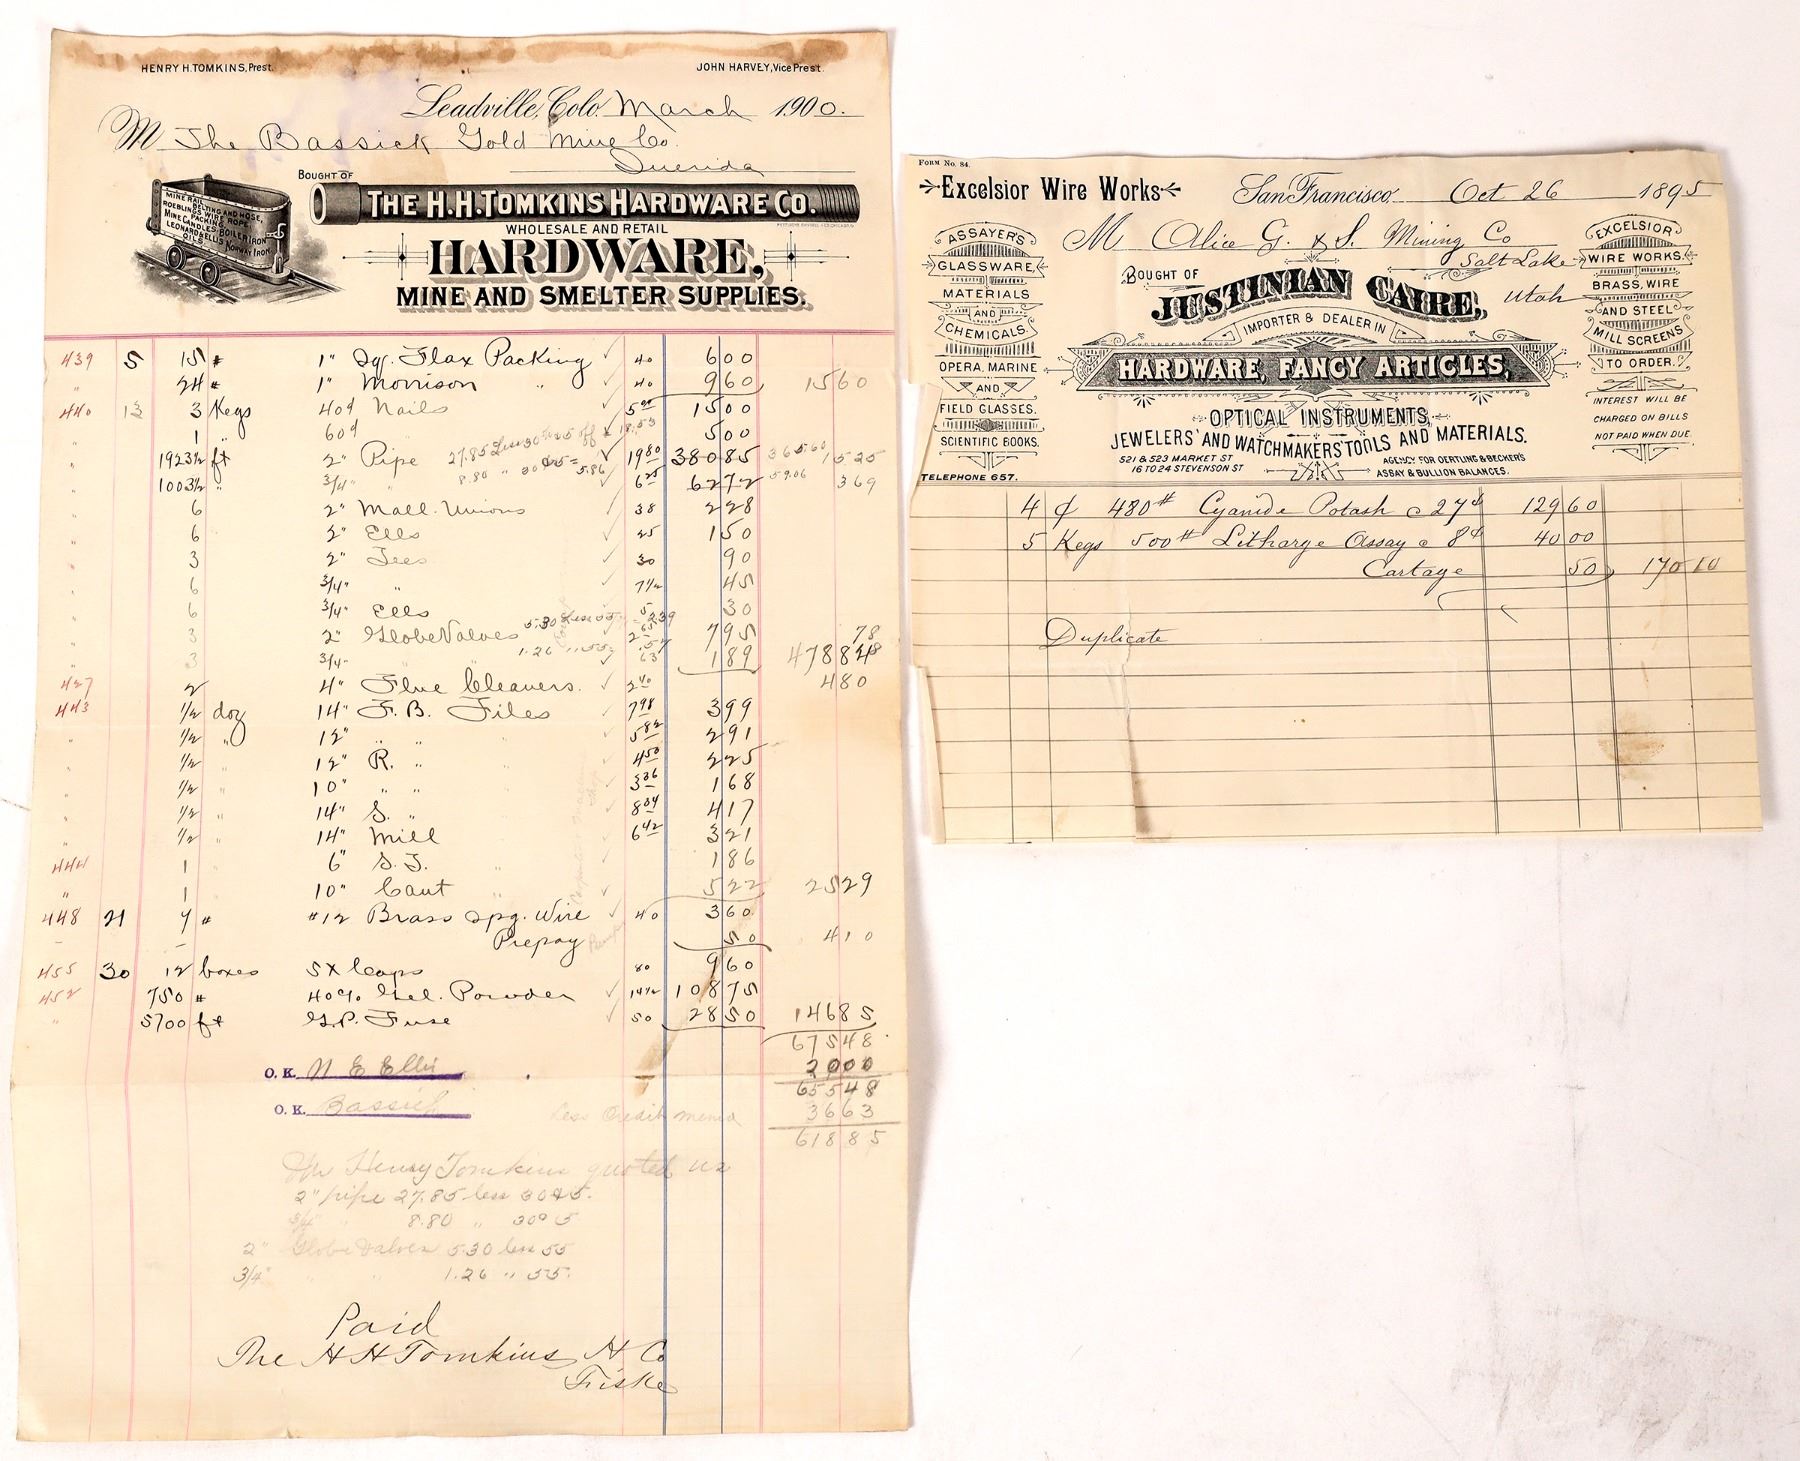 HENRY H. TOMKINS, Prest. JOHN HARVEY, Vice Prest.
Leadville, Colo. March 1900.
M The Bassick Gold Mine Co.
Querida
BOUGHT OF
THE H.H. TOMKINS HARDWARE CO.
WHOLESALE AND RETAIL
HARDWARE,
MINE AND SMELTER SUPPLIES.
MINE RAIL
BELTING AND HOSE,
ROEBLINGS WIRE ROPE
PACKING
MINE CANDLES, BOILER IRON
LEONARD & ELLIS
OILS NORWAY IRON
439 5 15 # 1" Sq. Flax Packing ✓ 40 600
" 24 # 1" Morrison " ✓ 40 960 1560
440 12 3 Kegs 40d Nails ✓ 5.00 1500
" 1 " 60d " 500
27.85 Less 30 & 5 off 18.53
" 1923½ ft 2" Pipe ✓ 19 80 38085 365.60 1525
8.80 " 30 & 5 = 5.86
" 1003½ " 3/4" " ✓ 6 25 6272 59.06 369
" 6 2" Mall. Unions ✓ 38 228
" 6 2" Ells ✓ 25 150
" 3 2" Tees ✓ 30 90
" 6 3/4" " ✓ 7½ 45
" 6 3/4" Ells ✓ 5 30
5.30 Less 55 2.39
" 3 2" Globe Valves ✓ 2 65 795 78
1.26 " 55 .57
" 3 3/4" " " ✓ 63 189 47884
427 2 4" Flue Cleaners. ✓ 2 40 480
443 ½ doz 14" F.B. Files ✓ 7 98 399
" ½ " 12" " " ✓ 5 82 291
" ½ " 12" R. " ✓ 4 50 225
" ½ " 10" " " ✓ 3 36 168
" ½ " 14" S. " ✓ 8 34 417
" ½ " 14" Mill " ✓ 6 42 321
444 1 6" S.T. 186
" 1 10" Cant " ✓ 522 2529
448 21 9 # #12 Brass Spg. Wire ✓ 40 360
Prepay 50 410
455 30 12 boxes 5X Caps 80 960
452 750 # 40% Gel. Powder ✓ 14½ 10875
" 5700 ft G.P. Fuse ✓ 50 2850 14685
67548
O.K. N E Ellis 2000
65548
O.K. Bassick Less Credit memo 3663
61885
Mr Henry Tomkins quoted us
2" pipe 27.85 less 30 & 5.
3/4" " 8.80 " 30 & 5
2" Globe Valves 5.30 less 55
3/4" " " 1.26 " 55.
Paid
The H H Tomkins H Co
Fiske
FORM No. 84.
Excelsior Wire Works San Francisco Oct 26 1895
M Alice G. & S. Mining Co
Salt Lake
Utah
BOUGHT OF
JUSTINIAN CAIRE,
IMPORTER & DEALER IN
HARDWARE, FANCY ARTICLES,
OPTICAL INSTRUMENTS,
JEWELERS' AND WATCHMAKERS' TOOLS AND MATERIALS.
521 & 523 MARKET ST
16 TO 24 STEVENSON ST
AGENCY FOR OERTLING & BECKER'S
ASSAY & BULLION BALANCES.
ASSAYER'S
GLASSWARE,
MATERIALS
AND
CHEMICALS.
OPERA, MARINE
AND
FIELD GLASSES.
SCIENTIFIC BOOKS.
TELEPHONE 657.
EXCELSIOR
WIRE WORKS.
BRASS, WIRE
AND STEEL
MILL SCREENS
TO ORDER.
INTEREST WILL BE
CHARGED ON BILLS
NOT PAID WHEN DUE.
4 ₵ 480# Cyanide Potash @ 27¢ 129 60
5 Kegs 500# Litharge Assay @ 8¢ 40 00
Cartage 50 170 10
Duplicate